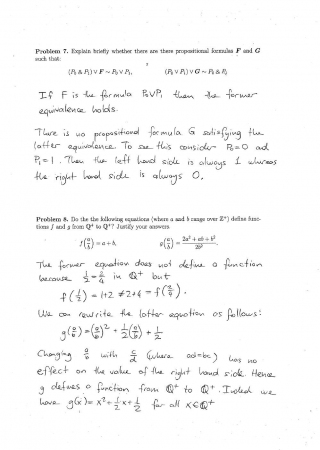 Problem 7. Explain briefly whether there are there propositional formulas F and G
such that:
(P₀ & P₁) ∨ F ∼ P₀ ∨ P₁, (P₀ ∨ P₁) ∨ G ∼ P₀ & P₁
If F is the formula P₀∨P₁ then the former
equivalence holds.
There is no propositional formula G satisfying the
latter equivalence. To see this consider P₀=0 and
P₁=1. Then the left hand side is always 1 whereas
the right hand side is always 0.
Problem 8. Do the the following equations (where a and b range over Z⁺) define func-
tions f and g from Q⁺ to Q⁺? Justify your answers
f(a/b) = a + b, g(a/b) = (2a² + ab + b²)/2b².
The former equation does not define a function
because 1/2 = 2/4 in Q⁺ but
f(1/2) = 1+2 ≠ 2+4 = f(2/4).
We can rewrite the latter equation as follows:
g(a/b) = (a/b)² + 1/2(a/b) + 1/2
Changing a/b with c/d (where ad=bc) has no
effect on the value of the right hand side. Hence
g defines a function from Q⁺ to Q⁺. Indeed we
have g(x) = x² + 1/2 x + 1/2 for all x∈Q⁺